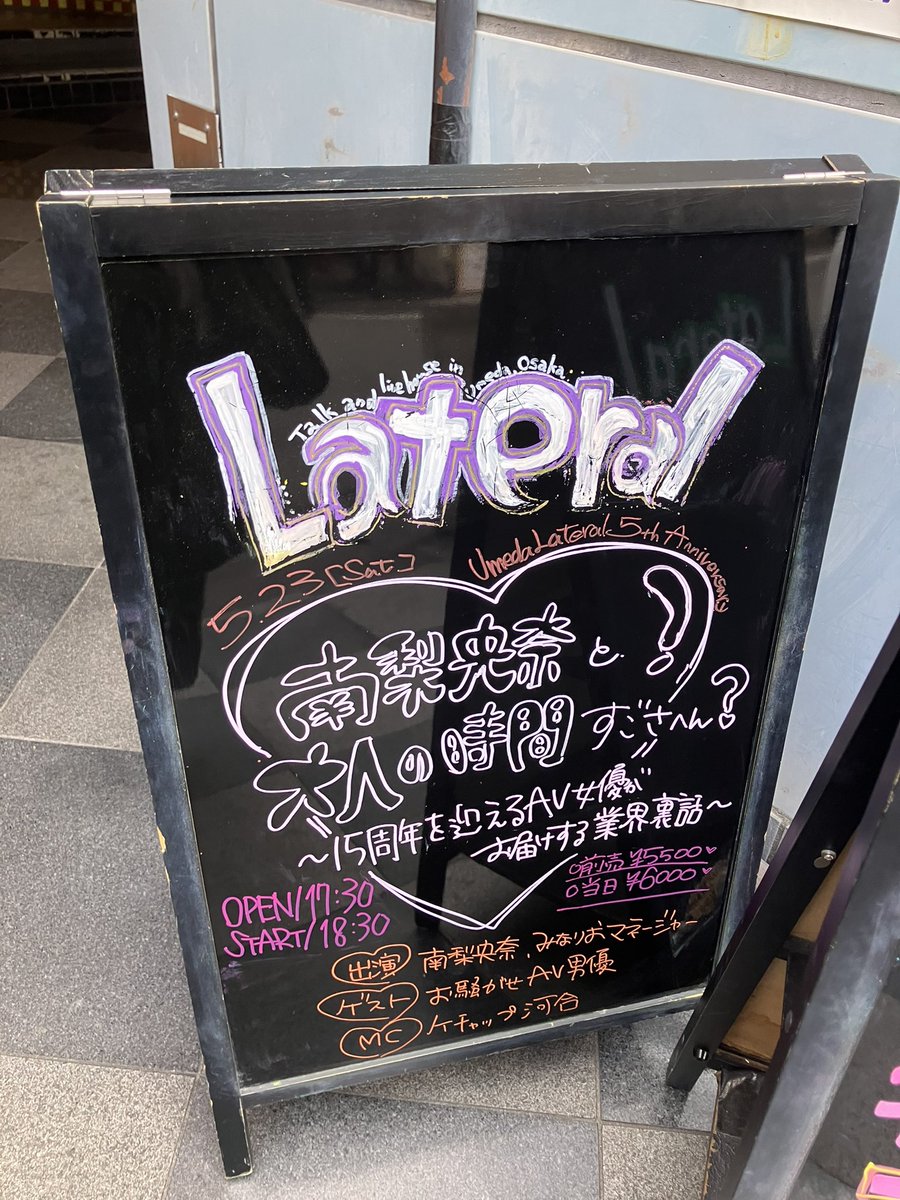 Talk and live house in Umeda Osaka
Lateral
5.23[Sat]
Umeda Lateral 5th Anniversary
南梨央奈と
大人の時間すごさへん!?
〜15周年を迎えるAV女優が
お届けする業界裏話〜
前売 ¥5500
当日 ¥6000
OPEN/17:30
START/18:30
出演 南梨央奈、みなりおマネージャー
ゲスト お騒がせAV男優
MC ケチャップ河合